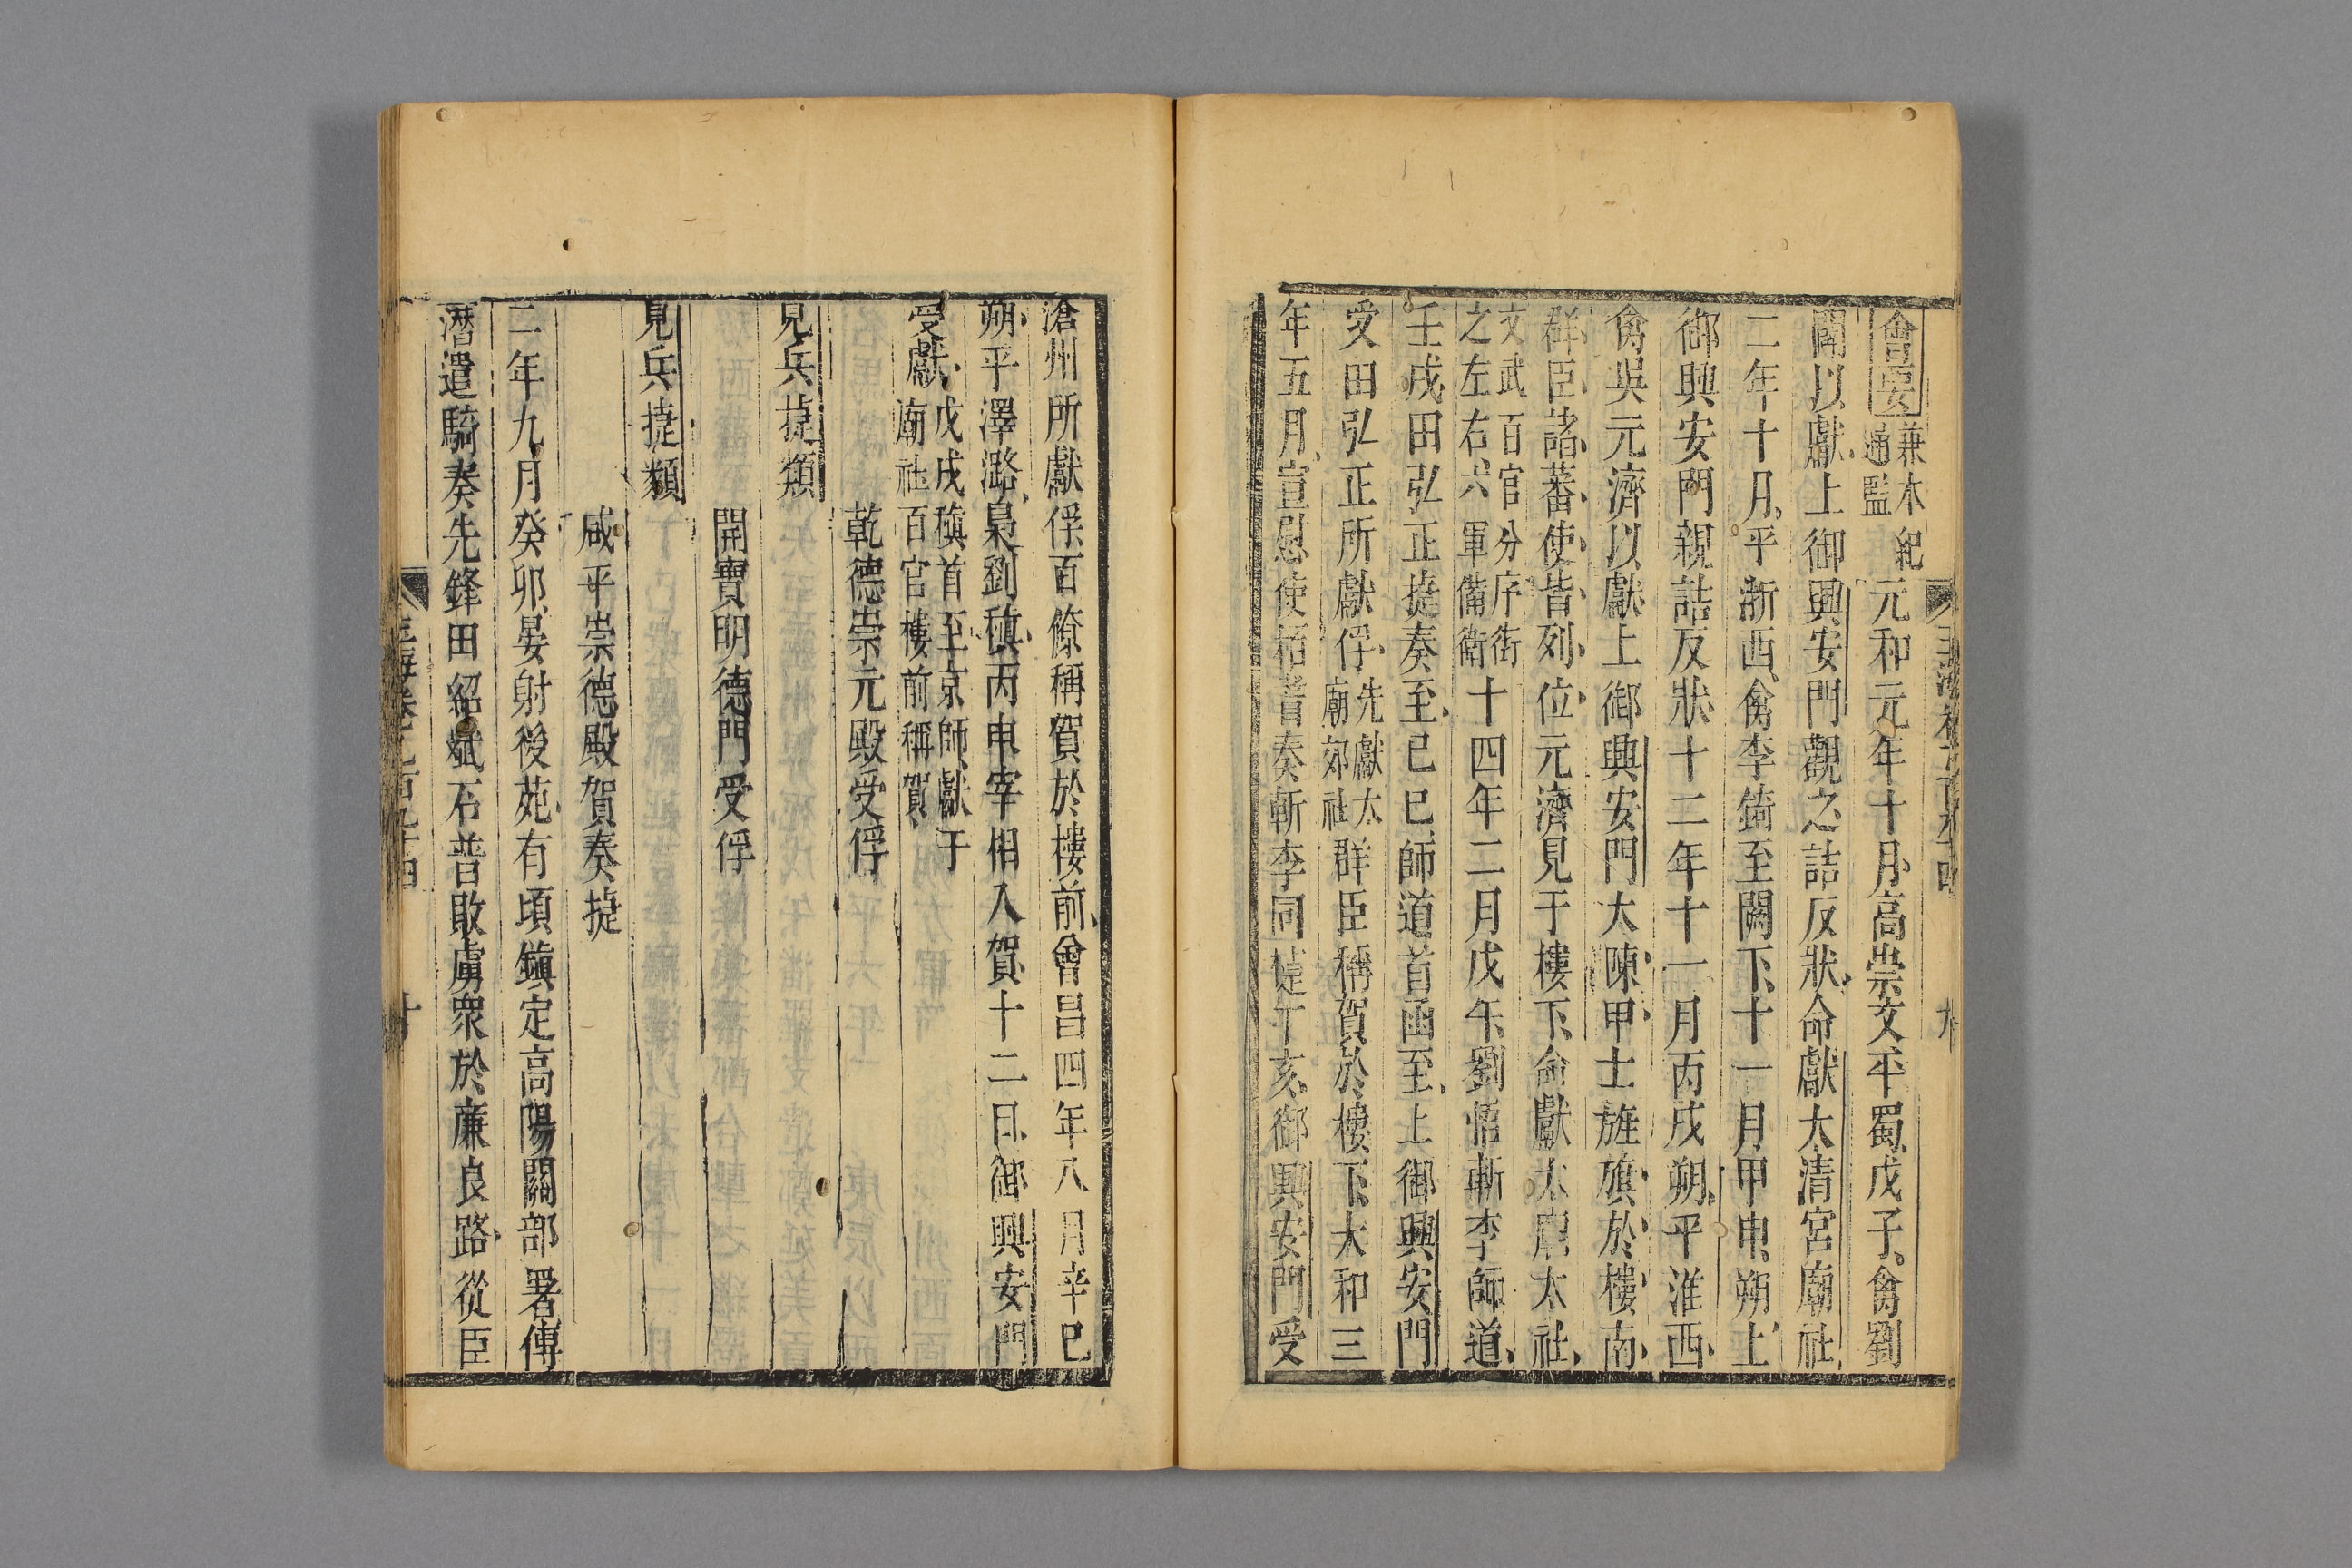 會要兼本紀通監元和元年十月高崇文平蜀戊子禽劉
闢以獻上御興安門觀之詰反狀命獻太清宮廟社
二年十月平浙西禽李錡至闕下十一月甲申朔上
御興安門親詰反狀十二年十一月丙戌朔平淮西
禽吳元濟以獻上御興安門大陳甲士旌旗於樓南
群臣諸蕃使皆列位元濟見于樓下命獻太廟太社
文武百官分序街之左右六軍備衛十四年二月戊午劉悟斬李師道
壬戌田弘正捷奏至己巳師道首函至上御興安門
受田弘正所獻俘先獻太廟郊社群臣稱賀於樓下太和三
年五月宣慰使栢耆奏斬李同捷丁亥御興安門受
滄州所獻俘百僚稱賀於樓前會昌四年八月辛巳
朔平澤潞梟劉稹丙申宰相入賀十二日御興安門
受獻戊戌稹首至京師獻于廟社百官樓前稱賀
乾德崇元殿受俘
見兵捷類
開寶明德門受俘
見兵捷類
咸平崇德殿賀奏捷
二年九月癸卯晏射後苑有頃鎮定高陽關部署傅
潛遣騎奏先鋒田紹斌石普敗虜衆於廉良路從臣